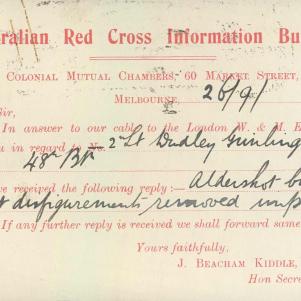 ralian Red Cross Information Bu
Colonial Mutual Chambers, 60 Market Street,
Melbourne, 26/9/
ir,
In answer to our cable to the London W. & M. E
u in regard to No. 2nd Lt Dudley
48th Bn
ve received the following reply :— Aldershot
t disfigurements removed
If any further reply is received we shall forward same
Yours faithfully,
J. Beacham Kiddle,
Hon Secre